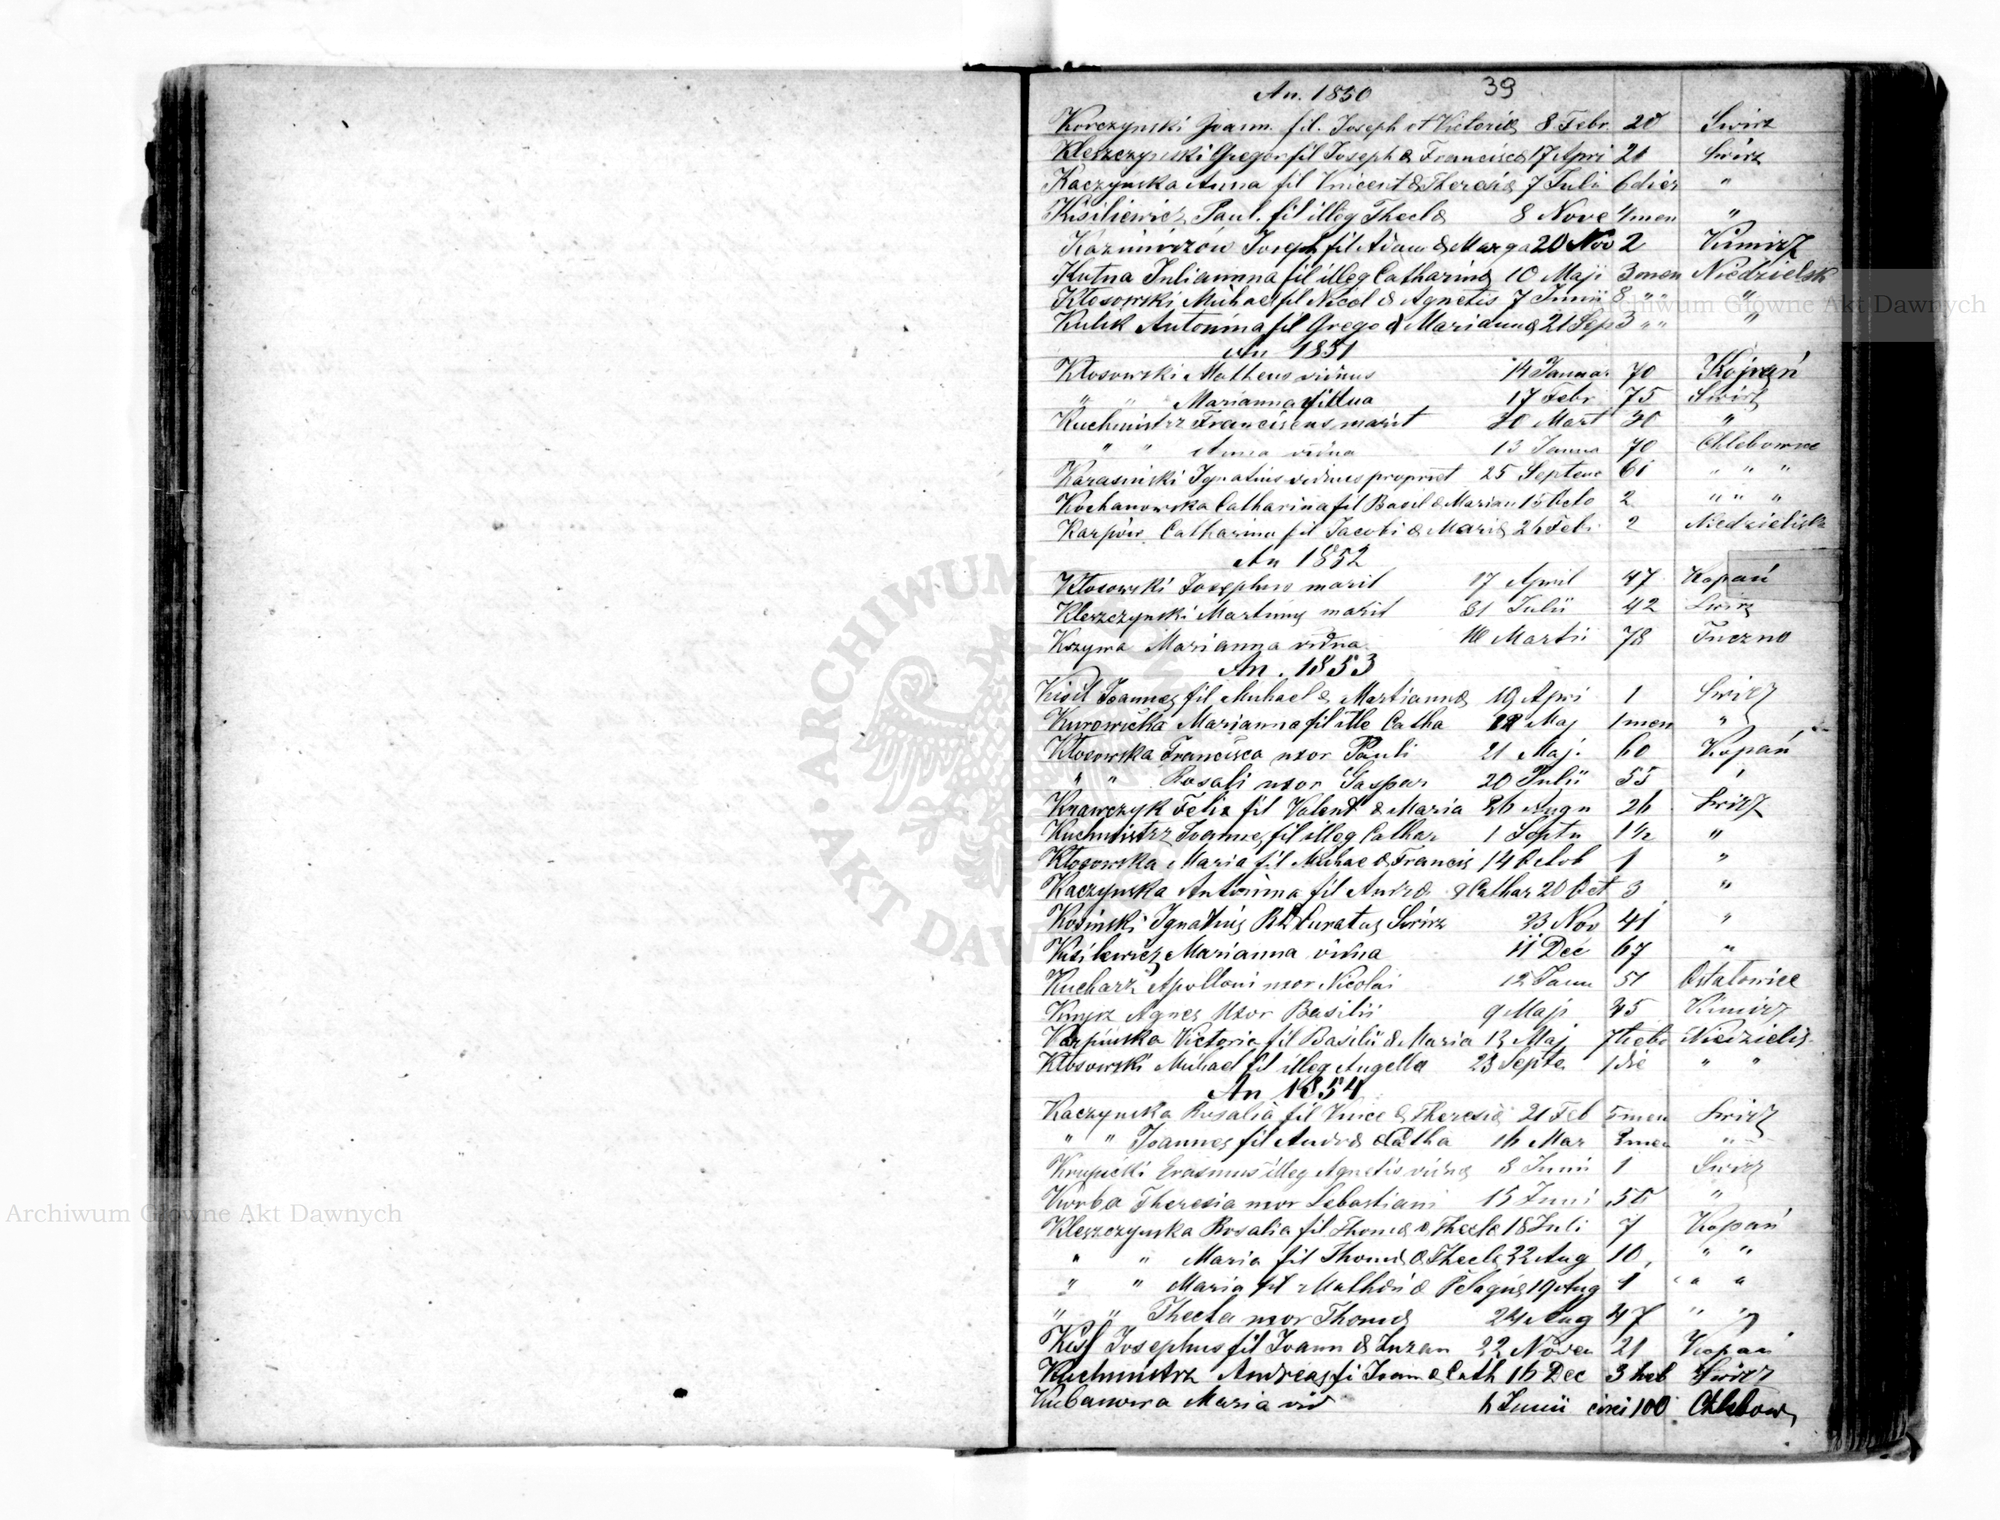 An. 1850 39
Korczynski Joann. fil. Joseph et Victoriæ 8 Febr. 20 Swirz
Kleszczynski Gregor fil Joseph & Francisca 17 Apri 21 Swirz
Kaczynska Anna fil Vincent & Theresiæ 7 Juli 6 dier "
Kisiliewicz Paul. fil illeg Theclæ 8 Nove 4 men "
Kazimirzów Joseph fil Adam & Marga 20 Nov 2 Kimirz
Kutna Julianna fil illeg Catharinæ 10 Maji 3 men Niedzielsk
Kłosowski Michael fil Nicol & Agnetis 7 Junii 8 " " "
Kulik Antonina fil Grego & Mariannæ 21 Sep 3 " " "
An 1851
Kłosowski Matheus viduus 14 Januar 70 Kopań
" " Marianna 17 Febr 75 Swirz
Kuchmistrz Franciscus marit 30 Mart 30 "
" " Anna vidua 13 Janua 70 Chlebowce
Karasinski Ignatius viduus propriet 25 Septem 61 " " "
Kochanowska Catharina fil Basil & Marian 15 Octo 2 " " "
Karpów Catharina fil Jacobi & Mariæ 26 Feb 2 Niedzielisk
An 1852
Kłosowski Josephus marit 17 April 47 Kopań
Kleszczynski Martinus marit 31 Julii 42 Swirz
Marianna vidua Martii 78 Tuczno
An. 1853
Kisil Joannes fil Michael & Martiannæ 19 Apri 1 Swirz
Kurowicka Marianna fil ille Catha Maj 1 men "
Kłosowska Francisca uxor Pauli 21 Maj. 60 Kopań
" " Rosali uxor Gaspar 20 Julii 55 "
Krawczyk Felix fil Valent & Maria 26 Augu 26 Swirz
Kuchmistrz Joannes fil illeg Cathar 1 Septe 1½ "
Kłosowska Maria fil Michae & Francis 14 Octob 1 "
Kaczynska Antonina fil Andræ & Cathar 20 Oct 3 "
Kosinski Ignatius RL Curatus Swirz 23 Nov 41 "
Kisilewicz Marianna vidua 11 Dec 67 "
Kucharz Apolloni uxor Nicolai 12 Janu 51 Ostalowice
Agnes Uxor Basilii 9 Maji 45 Kimirz
Karpinska Victoria fil Basilii & Maria 13 Maj 7 hebo Niedzielis
Kłosowski Michael fil illeg Angella 23 Septe 1 die " "
An 1854
Kaczynska Rosalia fil Vince & Theresiæ 21 Feb 5 men Swirz
" " Joannes fil Andræ & Catha 16 Mar 3 men "
Krupicki Erasmus illeg Agnetis viduæ 8 Junii 1 Swirz
Korba Theresia uxor Sebastiani 15 Juni 50 "
Kleszczynska Rosalia fil Thomæ & Thecla 18 Juli 7 Kopań
" " Maria fil Thomæ & Theclæ 22 Aug 10 " "
" " Maria fil Mathæi & Pelagiæ 19 Aug 1 " " "
" " Thecla uxor Thomæ 24 Aug 47 " "
Josephus fil Joann & Suzan 22 Novem 21 Kopań
Kuchmistrz Andreas fi Joan & Cath 16 Dec 3 heb Swirz
Kubanowa Maria vid 6 Junii circi 100 Chlebow
Archiwum Główne Akt Dawnych
Archiwum Główne Akt Dawnych